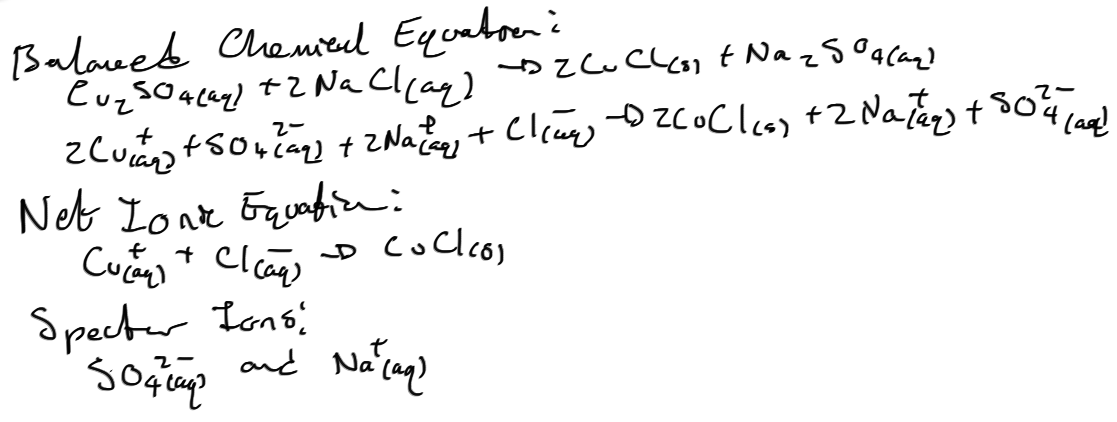 Balanced Chemical Equation:
Cu₂SO₄(aq) + 2NaCl(aq) → 2CuCl(s) + Na₂SO₄(aq)
2Cu⁺(aq) + SO₄²⁻(aq) + 2Na⁺(aq) + Cl⁻(aq) → 2CuCl(s) + 2Na⁺(aq) + SO₄²⁻(aq)
Net Ionic Equation:
Cu⁺(aq) + Cl⁻(aq) → CuCl(s)
Spectator Ions:
SO₄²⁻(aq) and Na⁺(aq)